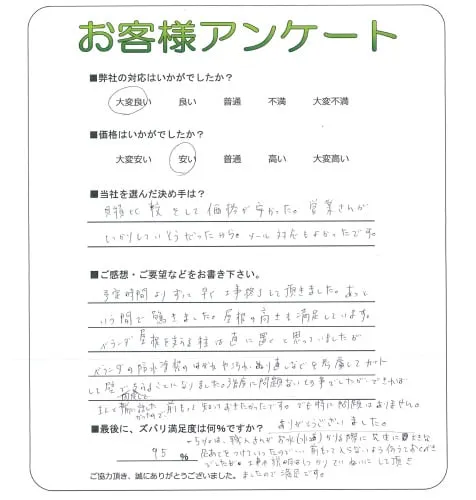 お客様アンケート
■弊社の対応はいかがでしたか?
大変良い 良い 普通 不満 大変不満
■価格はいかがでしたか?
大変安い 安い 普通 高い 大変高い
■当社を選んだ決め手は?
見積比較をして価格が安かった。営業さんが
しっかりしていそうだったから。メール対応もよかったです。
■ご感想・ご要望などをお書き下さい。
予定時間よりずっと早く工事終了して頂きました。あっと
いう間で驚きました。屋根の高さも満足しています。
ベランダ屋根を支える柱は直に置くと思っていましたが
ベランダの防水塗装のはがれや汚れ、ぬり直しなどを考慮してカット
して壁で支えることになりました。強度に問題ないとの事でしたができれば
前もって知っておきたかったです。でも特に問題はありません。
ありがとうございました。
■最後に、ズバリ満足度は何%ですか?
95 %
-5%は、職人さんがお水(水道)
ていねいにして頂き
ましたので満足です。
ご協力頂き、誠にありがとうございました。